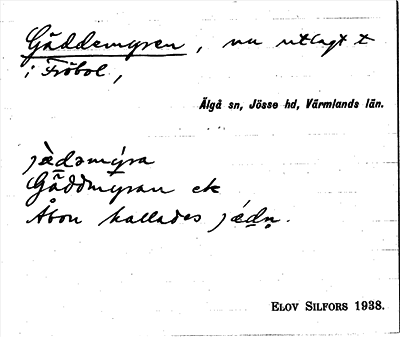 Gäddemyren, nu utlagt t
i Fröbol,
Älgå sn, Jösse hd, Värmlands län.
jæ̀dəmýra
Gäddmyran ek
Åbon kallades jǽdn̥.
ELOV SILFORS 1938.